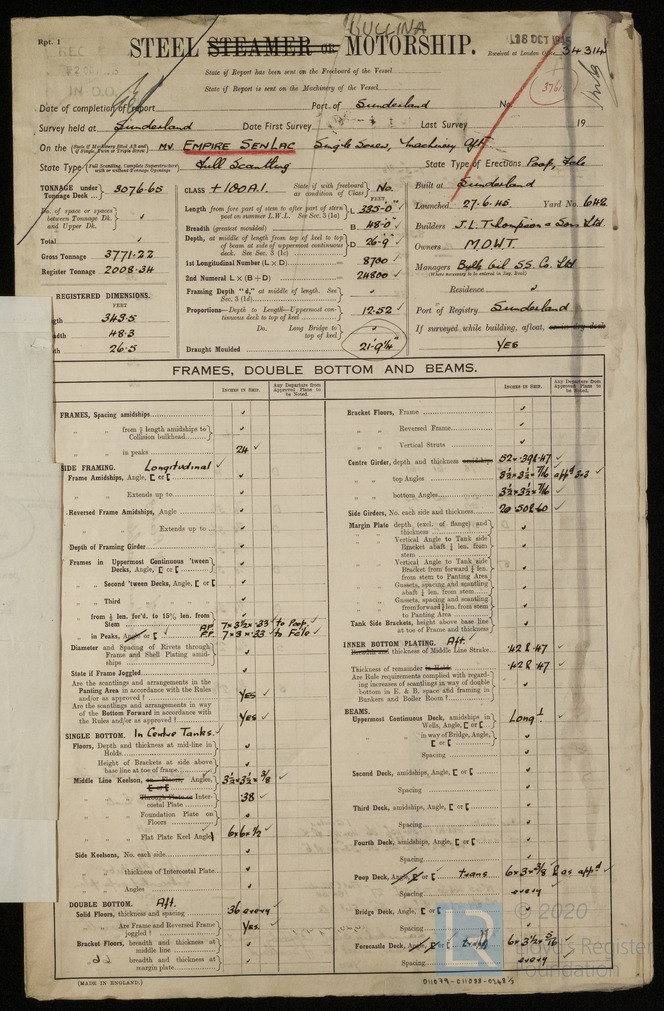 Rpt. 1
BULLINA
STEEL STEAMER OR MOTORSHIP.
28 OCT 1945
Received at London Office 34314
State if Report has been sent on the Freeboard of the Vessel
State if Report is sent on the Machinery of the Vessel
Date of completion of report Port of Sunderland No.
Survey held at Sunderland Date First Survey Last Survey 19
On the (State if Machinery fitted Aft and if Single, Twin or Triple Screw) MV. EMPIRE SENLAC Single Screw, Machinery Aft
State Type (Full Scantling, Complete Superstructure with or without Tonnage Openings) Full Scantling State Type of Erections Poop, Fcle
TONNAGE under Tonnage Deck ... 3076.65
Do. of space or spaces between Tonnage Dk. and Upper Dk.
Total
Gross Tonnage 3771.22
Register Tonnage 2008.34
REGISTERED DIMENSIONS.
FEET
343.5
48.3
26.5
CLASS +100A1. State if with freeboard as condition of Class No.
FEET
Length from fore part of stem to after part of stern post on summer L.W.L. See Sec. 3 (1a) L 335-0"
Breadth (greatest moulded) B 48-0
Depth, at middle of length from top of keel to top of beam at side of uppermost continuous deck. See Sec. 3 (1c) D 26-9
1st Longitudinal Number (L × D) 8700
2nd Numeral L × (B + D) 24800
Framing Depth "d," at middle of length. See Sec. 3 (1d)
Proportions—Depth to Length—Uppermost continuous deck to top of keel 12.52
Do. Long Bridge to top of keel
Draught Moulded 21-9¼"
Built at Sunderland
Launched 27.6.45. Yard No. 642
Builders J.L. Thompson & Sons Ltd.
Owners M.O.W.T.
Managers Bulk Oil S.S. Co. Ltd
(Where necessary to be entered in Reg. Book)
Residence
Port of Registry Sunderland
If surveyed while building, afloat, or in dry dock
YES
FRAMES, DOUBLE BOTTOM AND BEAMS.
INCHES IN SHIP. Any Departure from Approved Plans to be Noted.
FRAMES, Spacing amidships
" " from ⅕ length amidships to Collision bulkhead
" " in peaks 24
SIDE FRAMING. Longitudinal
Frame Amidships, Angle, [ or [
" " Extends up to
Reversed Frame Amidships, Angle
" " Extends up to
Depth of Framing Girder
Frames in Uppermost Continuous 'tween Decks, Angle, [ or [
" Second 'tween Decks, Angle, [ or [
" Third " " "
" from ⅕ len. for'd. to 15% len. from Stem A.P. 7 × 3½ × .33 to Poop
" in Peaks, Angle or [ F.P. 7 × 3 × .33 to Fcle
Diameter and Spacing of Rivets through Frame and Shell Plating amidships
State if Frame Joggled
Are the scantlings and arrangements in the Panting Area in accordance with the Rules and/or as approved? YES
Are the scantlings and arrangements in way of the Bottom Forward in accordance with the Rules and/or as approved? YES
SINGLE BOTTOM. In Centre Tanks.
Floors, Depth and thickness at mid-line in Holds
Height of Brackets at side above base line at toe of frame
Middle Line Keelson, on Floors, Angles, [ or [ 3½ × 3½ × ⅜
" " Through Plate or Intercostal Plate .38
" " Foundation Plate on Floors
" " Flat Plate Keel Angle 6 × 6 × ½
Side Keelsons, No. each side
" " thickness of Intercostal Plate
" " Angles
DOUBLE BOTTOM. Aft.
Solid Floors, thickness and spacing .36 every
" " Are Frame and Reversed Frame joggled? Yes.
Bracket Floors, breadth and thickness at middle line
" " breadth and thickness at margin plate
(MADE IN ENGLAND.)
INCHES IN SHIP. Any Departure from Approved Plans to be Noted.
Bracket Floors, Frame
" " Reversed Frame
" " Vertical Struts
Centre Girder, depth and thickness amidships 52 × .39 & .47
" " top Angles 3½ × 3½ × 7/16 appd 3×3
" " bottom Angles 3½ × 3½ × 7/16
Side Girders, No. each side and thickness 20 .50 & .60
Margin Plate depth (excl. of flange) and thickness
" " Vertical Angle to Tank side Bracket abaft ¼ len. from stem
" " Vertical Angle to Tank side Bracket from forward ¼ len. from stem to Panting Area
" " Gussets, spacing and scantlings abaft ¼ len. from stem
" " Gussets, spacing and scantlings from forward ¼ len. from stem to Panting Area
Tank Side Brackets, height above base line at toe of Frame and thickness
INNER BOTTOM PLATING. Aft.
Breadth and thickness of Middle Line Strake .42 & .47
Thickness of remainder in Hold .42 & .47
Are Rule requirements complied with regarding increases of scantlings in way of double bottom in E. & B. space and framing in Bunkers and Boiler Room?
BEAMS.
Uppermost Continuous Deck, amidships in Wells, Angle, [ or [ Longl
" " in way of Bridge, Angle, [ or [
" " Spacing
Second Deck, amidships, Angle, [ or [
" " Spacing
Third Deck, amidships, Angle, [ or [
" " Spacing
Fourth Deck, amidships, Angle, [ or [
" " Spacing
Poop Deck, Angle, [ or [ trans 6 × 3 × ⅜ & as appd
" " Spacing every
Bridge Deck, Angle, [ or [
" " Spacing
Forecastle Deck, Angle, [ or [ 6 × 3½ × 5/16
" " Spacing every
© 2020
Lloyd's Register
Foundation
011079-011088-0248 1/2